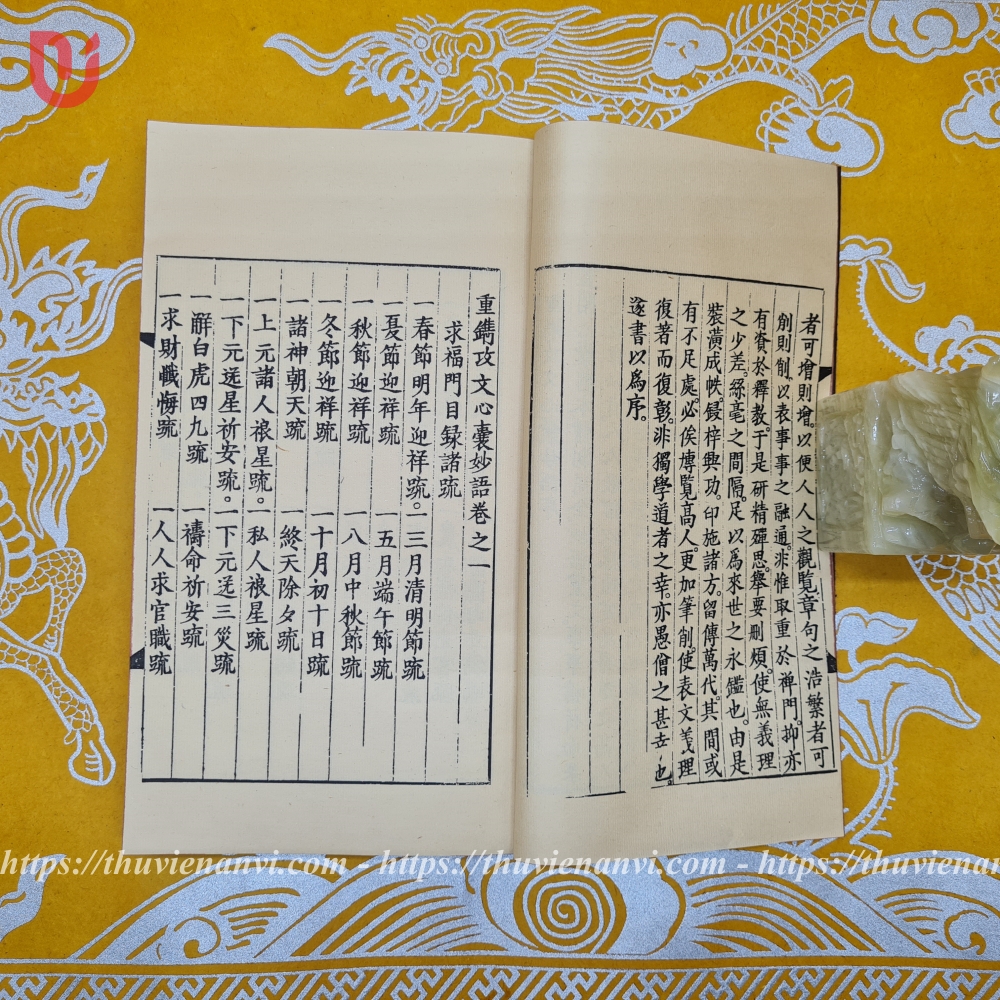 者可增則增。以便人人之觀覧章句之浩繁者可
削則削、以表事事之融通。非惟取重於禅門。抑亦
有資於釋教。于是研精殫思。舉要刪煩。使無義理
之少差。絲毫之間隔。足以為來世之永鑑也。由是
裝潢成帙。録梓興功。印施諸方。留傳萬代。其間或
有不足處。必俟博覧高人。更加筆削。使表文義理
復著而復彰。非獨學道者之幸。亦愚僧之甚幸也。
遂書以爲序。
重鐫攻文心囊妙語卷之一
求福門目録諸疏
一春節明年迎祥疏。一三月清明節疏
一夏節迎祥疏 一五月端午節疏
一秋節迎祥疏 一八月中秋節疏
一冬節迎祥疏 一十月初十日疏
一諸神朝天疏 一終天除夕疏
一上元諸人禳星疏。一私人禳星疏
一下元送星祈安疏。一下元送三災疏
一解白虎四九疏 一禱命祈安疏
一求財懺悔疏 一人人求官職疏
https://thuvienanvi.com - https://thuvienanvi.com - https://thuviena